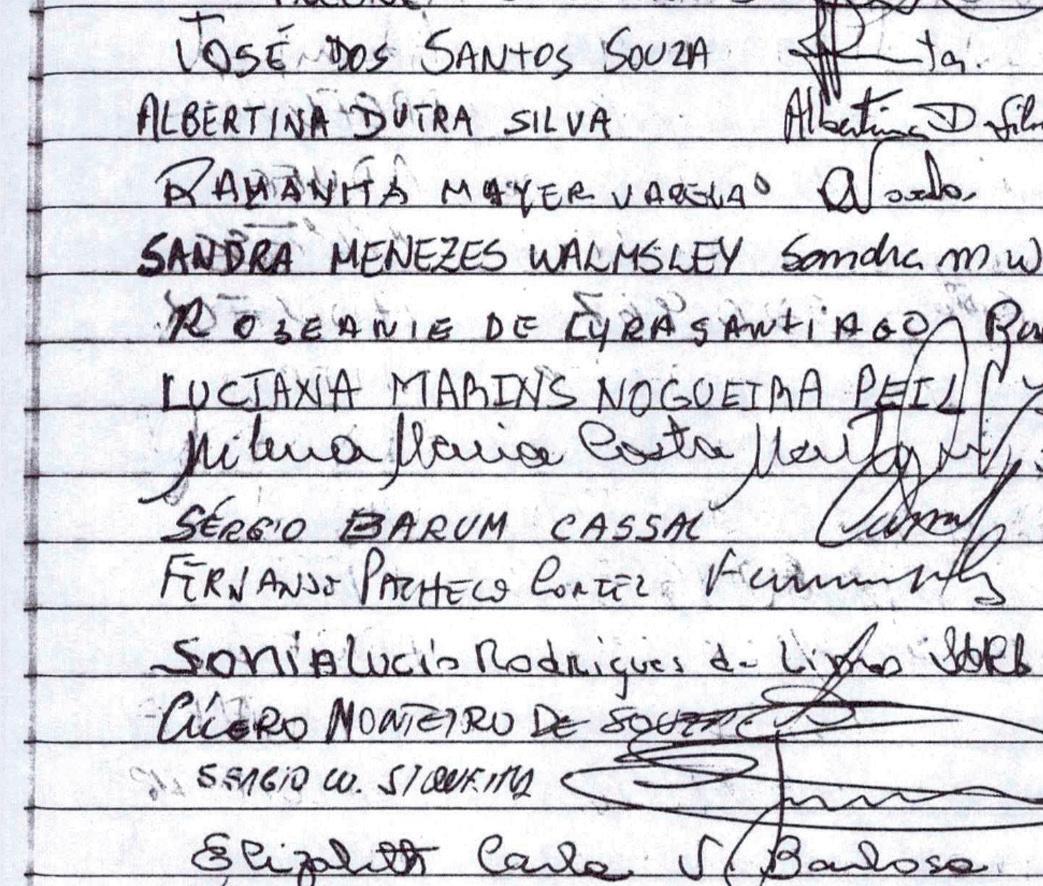 JOSÉ DOS SANTOS SOUZA
ALBERTINA DUTRA SILVA Albertina D Silv
MAYER VARELA
SANDRA MENEZES WALMSLEY Sandra M. W
ROSEANIE DE LYRA SANTIAGO
LUCIANA MARINS NOGUEIRA PEIL
Milena Maria Costa
SÉRGIO BARUM CASSAL Cassal
FERNANDO PACHECO CORTEZ
SONIA Lucia Rodrigues de
CÍCERO MONTEIRO DE SOUZA
SERGIO W. SIQUEIRA
Elizabeth Carla S. Barbosa